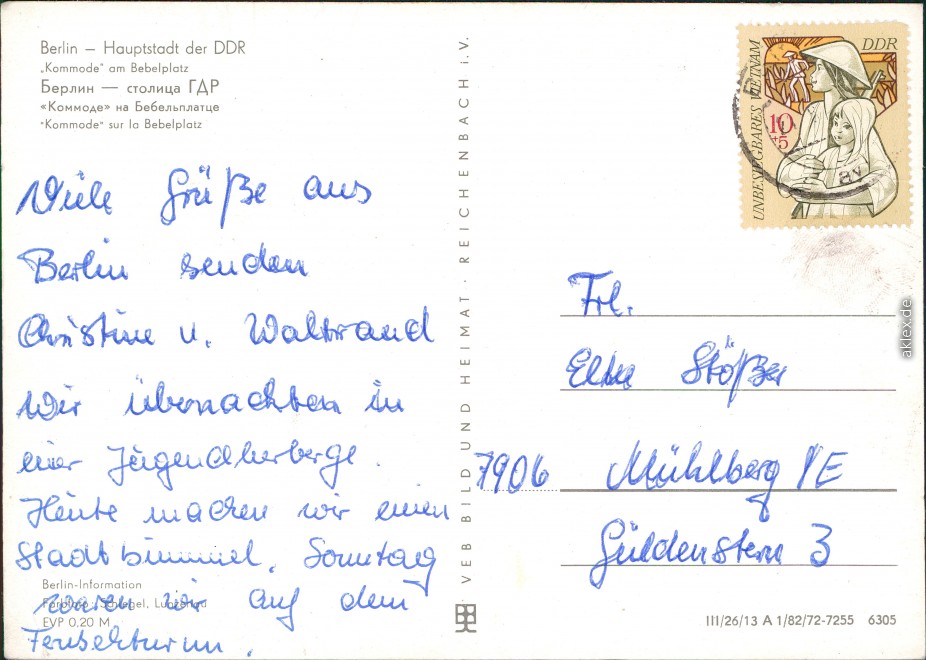 Berlin – Hauptstadt der DDR
„Kommode" am Bebelplatz
Берлин — столица ГДР
«Коммоде» на Бебельплатце
"Kommode" sur la Bebelplatz
Viele Grüße aus
Berlin senden
Christine u. Waltraud
Wir übernachten in
einer Jugendherberge.
Heute machen wir einen
Stadtbummel. Sonntag
waren wir auf dem
Fernsehturm.
Berlin-Information
Farbfoto: Schlegel, Lunzenau
EVP 0,20 M
VEB BILD UND HEIMAT · REICHENBACH I.V.
UNBESIEGBARES VIETNAM
DDR
10
+5
Frl.
Elke Stößer
7906 Mühlberg/E
Güldenstern 3
III/26/13 A 1/82/72-7255 6305
aklex.de